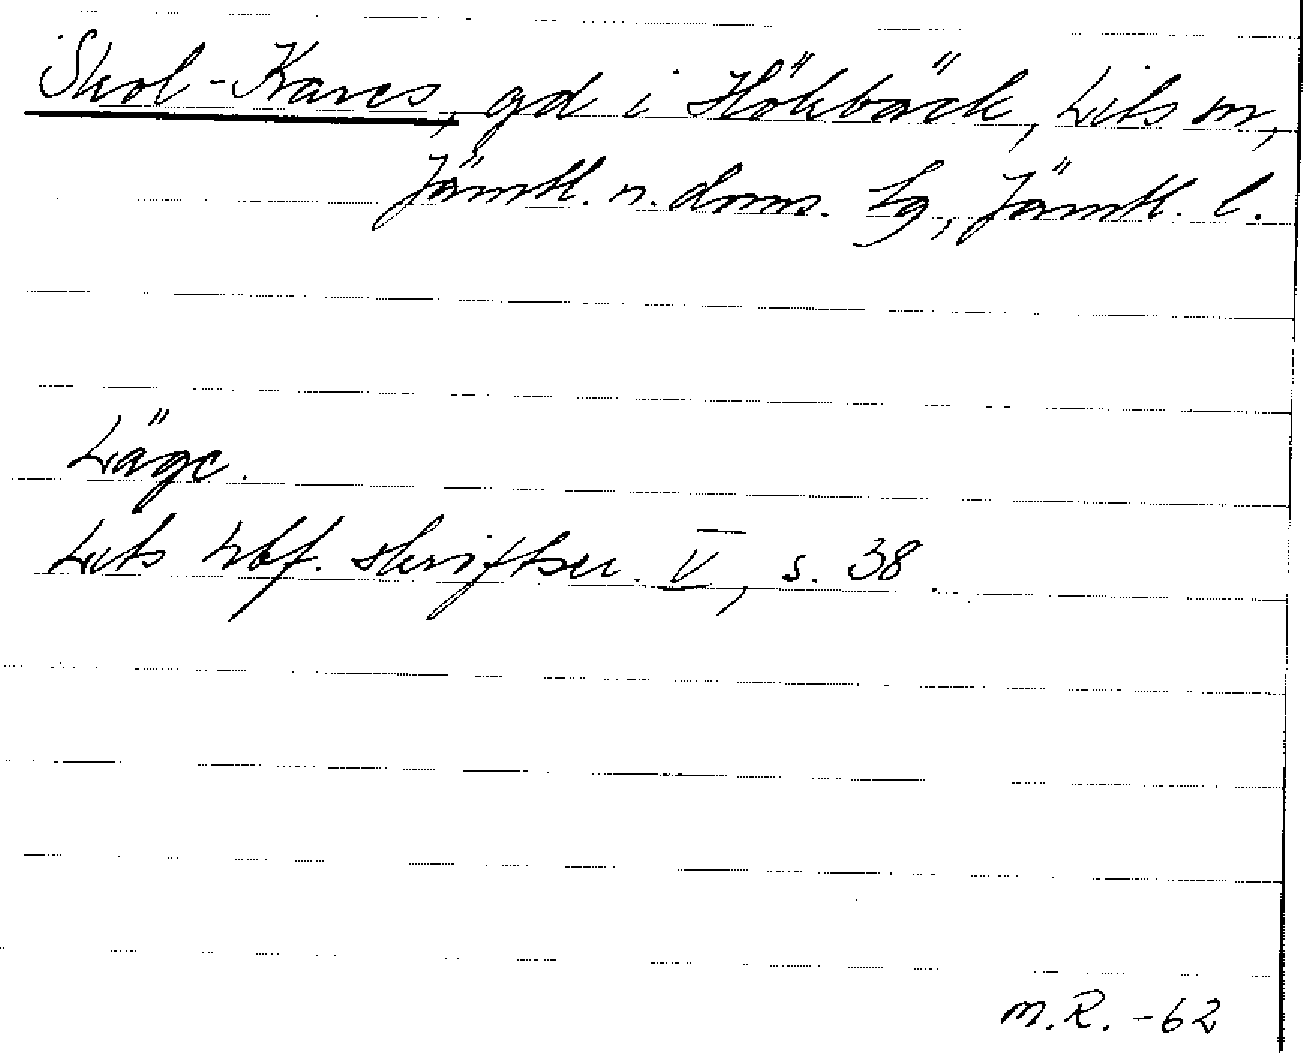 Skol-Kares, gd i Hökbäck, Lits sn,
Jämtl. n. doms. tg, Jämtl. l.
Läge.
Lits hbf. skriftser. V, s. 38.
M.R. -62